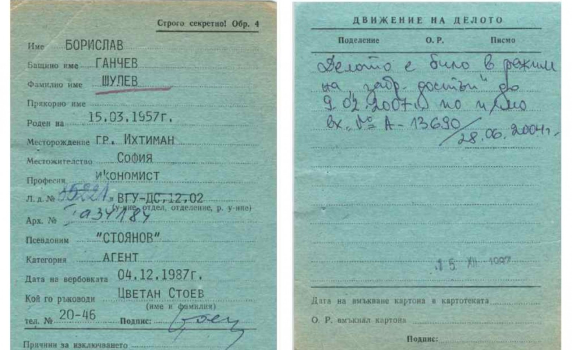 Строго секретно! Обр. 4
Име БОРИСЛАВ
Бащино име ГАНЧЕВ
Фамилно име ШУЛЕВ
Прякорно име
Роден на 15.03.1957г.
Месторождение ГР. ИХТИМАН
Местожителство СОФИЯ
Професия иКОНОМИСТ
Л. д. № ВГУ-ДС,12,02
(у-ние, отдел, отделение, р. у-ние)
Арх. №
Псевдоним "СТОЯНОВ"
Категория АГЕНТ
Дата на вербовката 04.12.1987г.
Кой го ръководи ЦВЕТАН СТОЕВ
(име и фамилия)
тел. № 20-46 Подпис:
Причини за изключването
ДВИЖЕНИЕ НА ДЕЛОТО
Поделение О. Р. Писмо
Делото е било в режим
на „забр. достъп" до
9.02.2007г. по писмо
вх. № А-13690/28.06.2004г.
15 XII 1987
Дата на вмъкване картона в картотеката
О. Р. вмъкнал картона
Подпис: